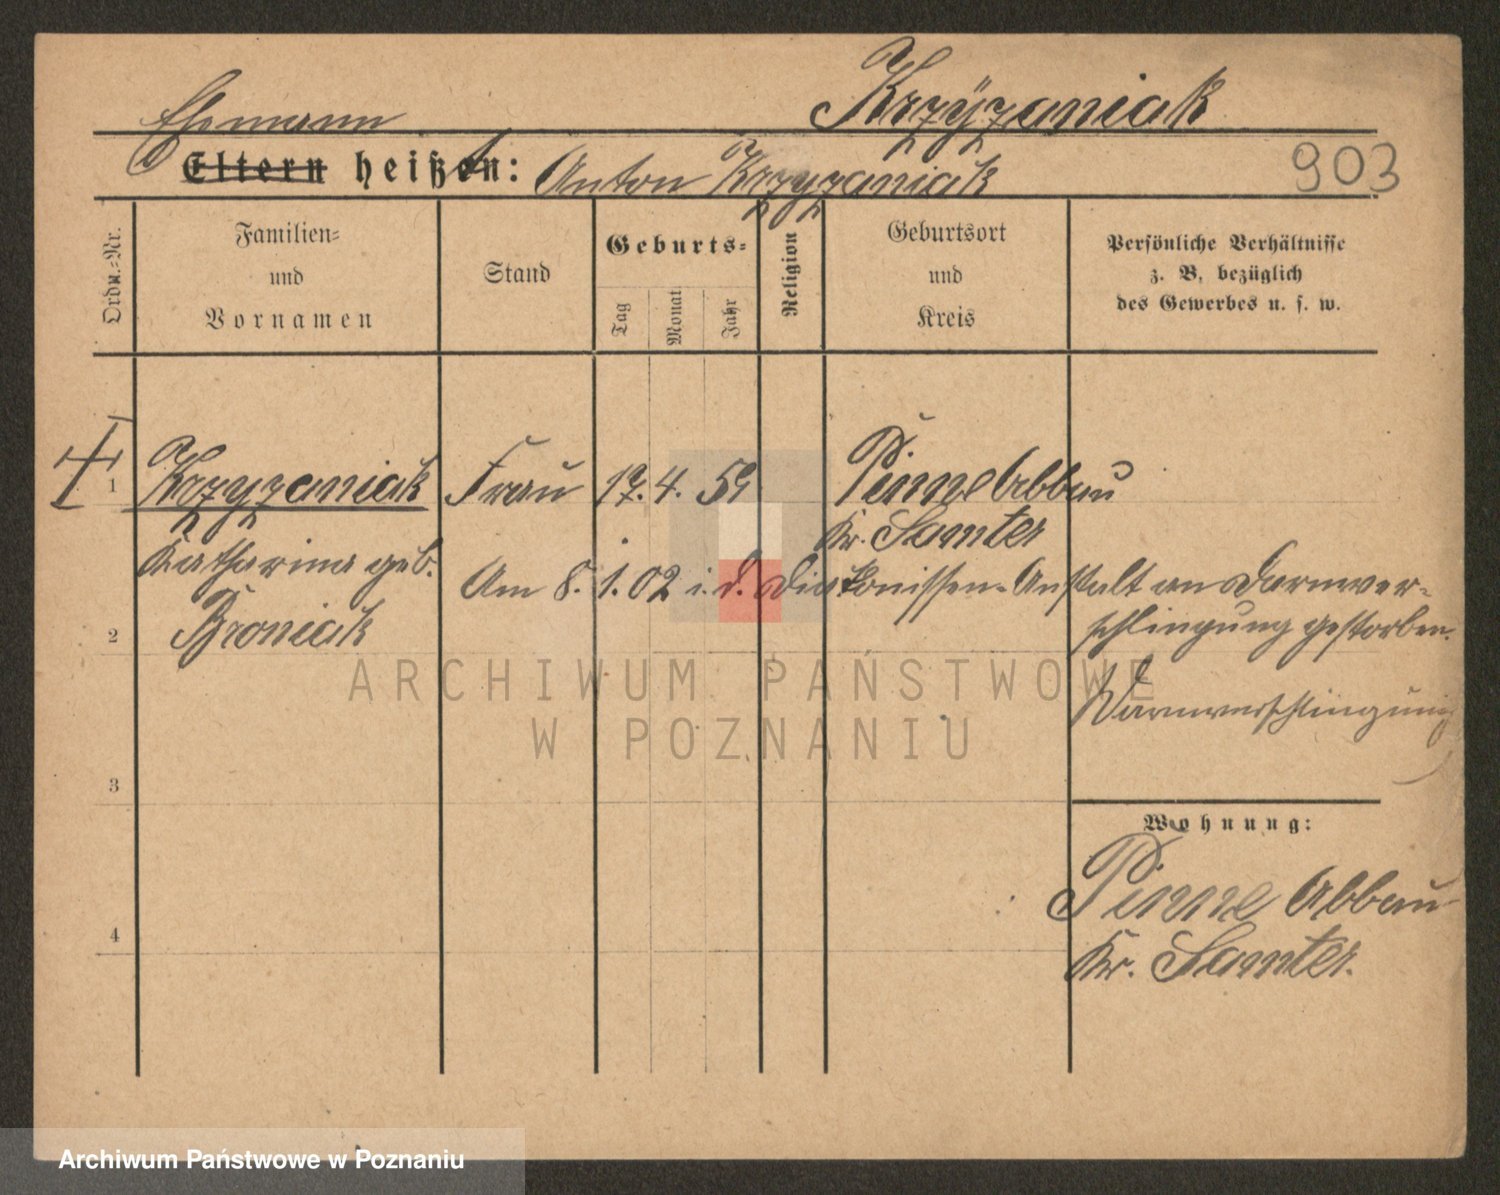 Krzyżaniak
Ehemann
Eltern heißen: Anton Krzyzaniak
903
Ordn.-Nr.
Familien-
und
Vornamen
Stand
Geburts-
Tag
Monat
Jahr
Religion
Geburtsort
und
Kreis
Persönliche Verhältnisse
z. B. bezüglich
des Gewerbes u. s. w.
1 Krzyzaniak Frau 17. 4. 59 Pinne Abbau
Kr. Samter
Katharina geb.
Am 8. 1. 02 i. d. Diakonissen-Anstalt an Darmver-
schlingung gestorben.
2 Broniak
Darmverschlingung
3
Wohnung:
Pinne Abbau
4
Kr. Samter.
ARCHIWUM PAŃSTWOWE
W POZNANIU
Archiwum Państwowe w Poznaniu